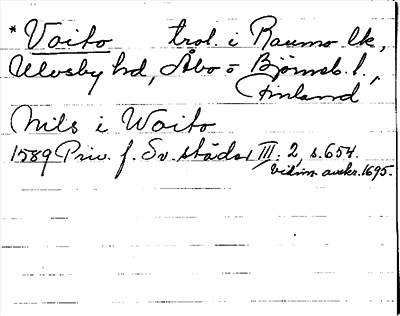 * Voito trol. i Raumo lk,
Ulvsby hd, Åbo o Björneb. l.,
Finland
Nils i Woito
1589 Priv. f. Sv. städer III: 2, s. 654.
vidim. avskr. 1695.